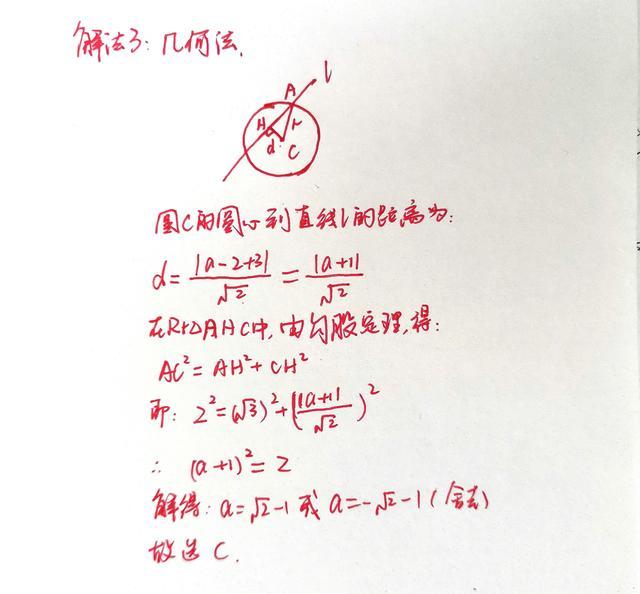 解法3: 几何法.
l
A
H
r
d
C
圆C的圆心到直线l的距离为:
d = |a-2+3| / √2 = |a+1| / √2
在Rt△AHC中, 由勾股定理, 得:
AC² = AH² + CH²
即: 2² = (√3)² + (|a+1| / √2)²
∴ (a+1)² = 2
解得: a = √2 - 1 或 a = -√2 - 1 (舍去)
故选 C.